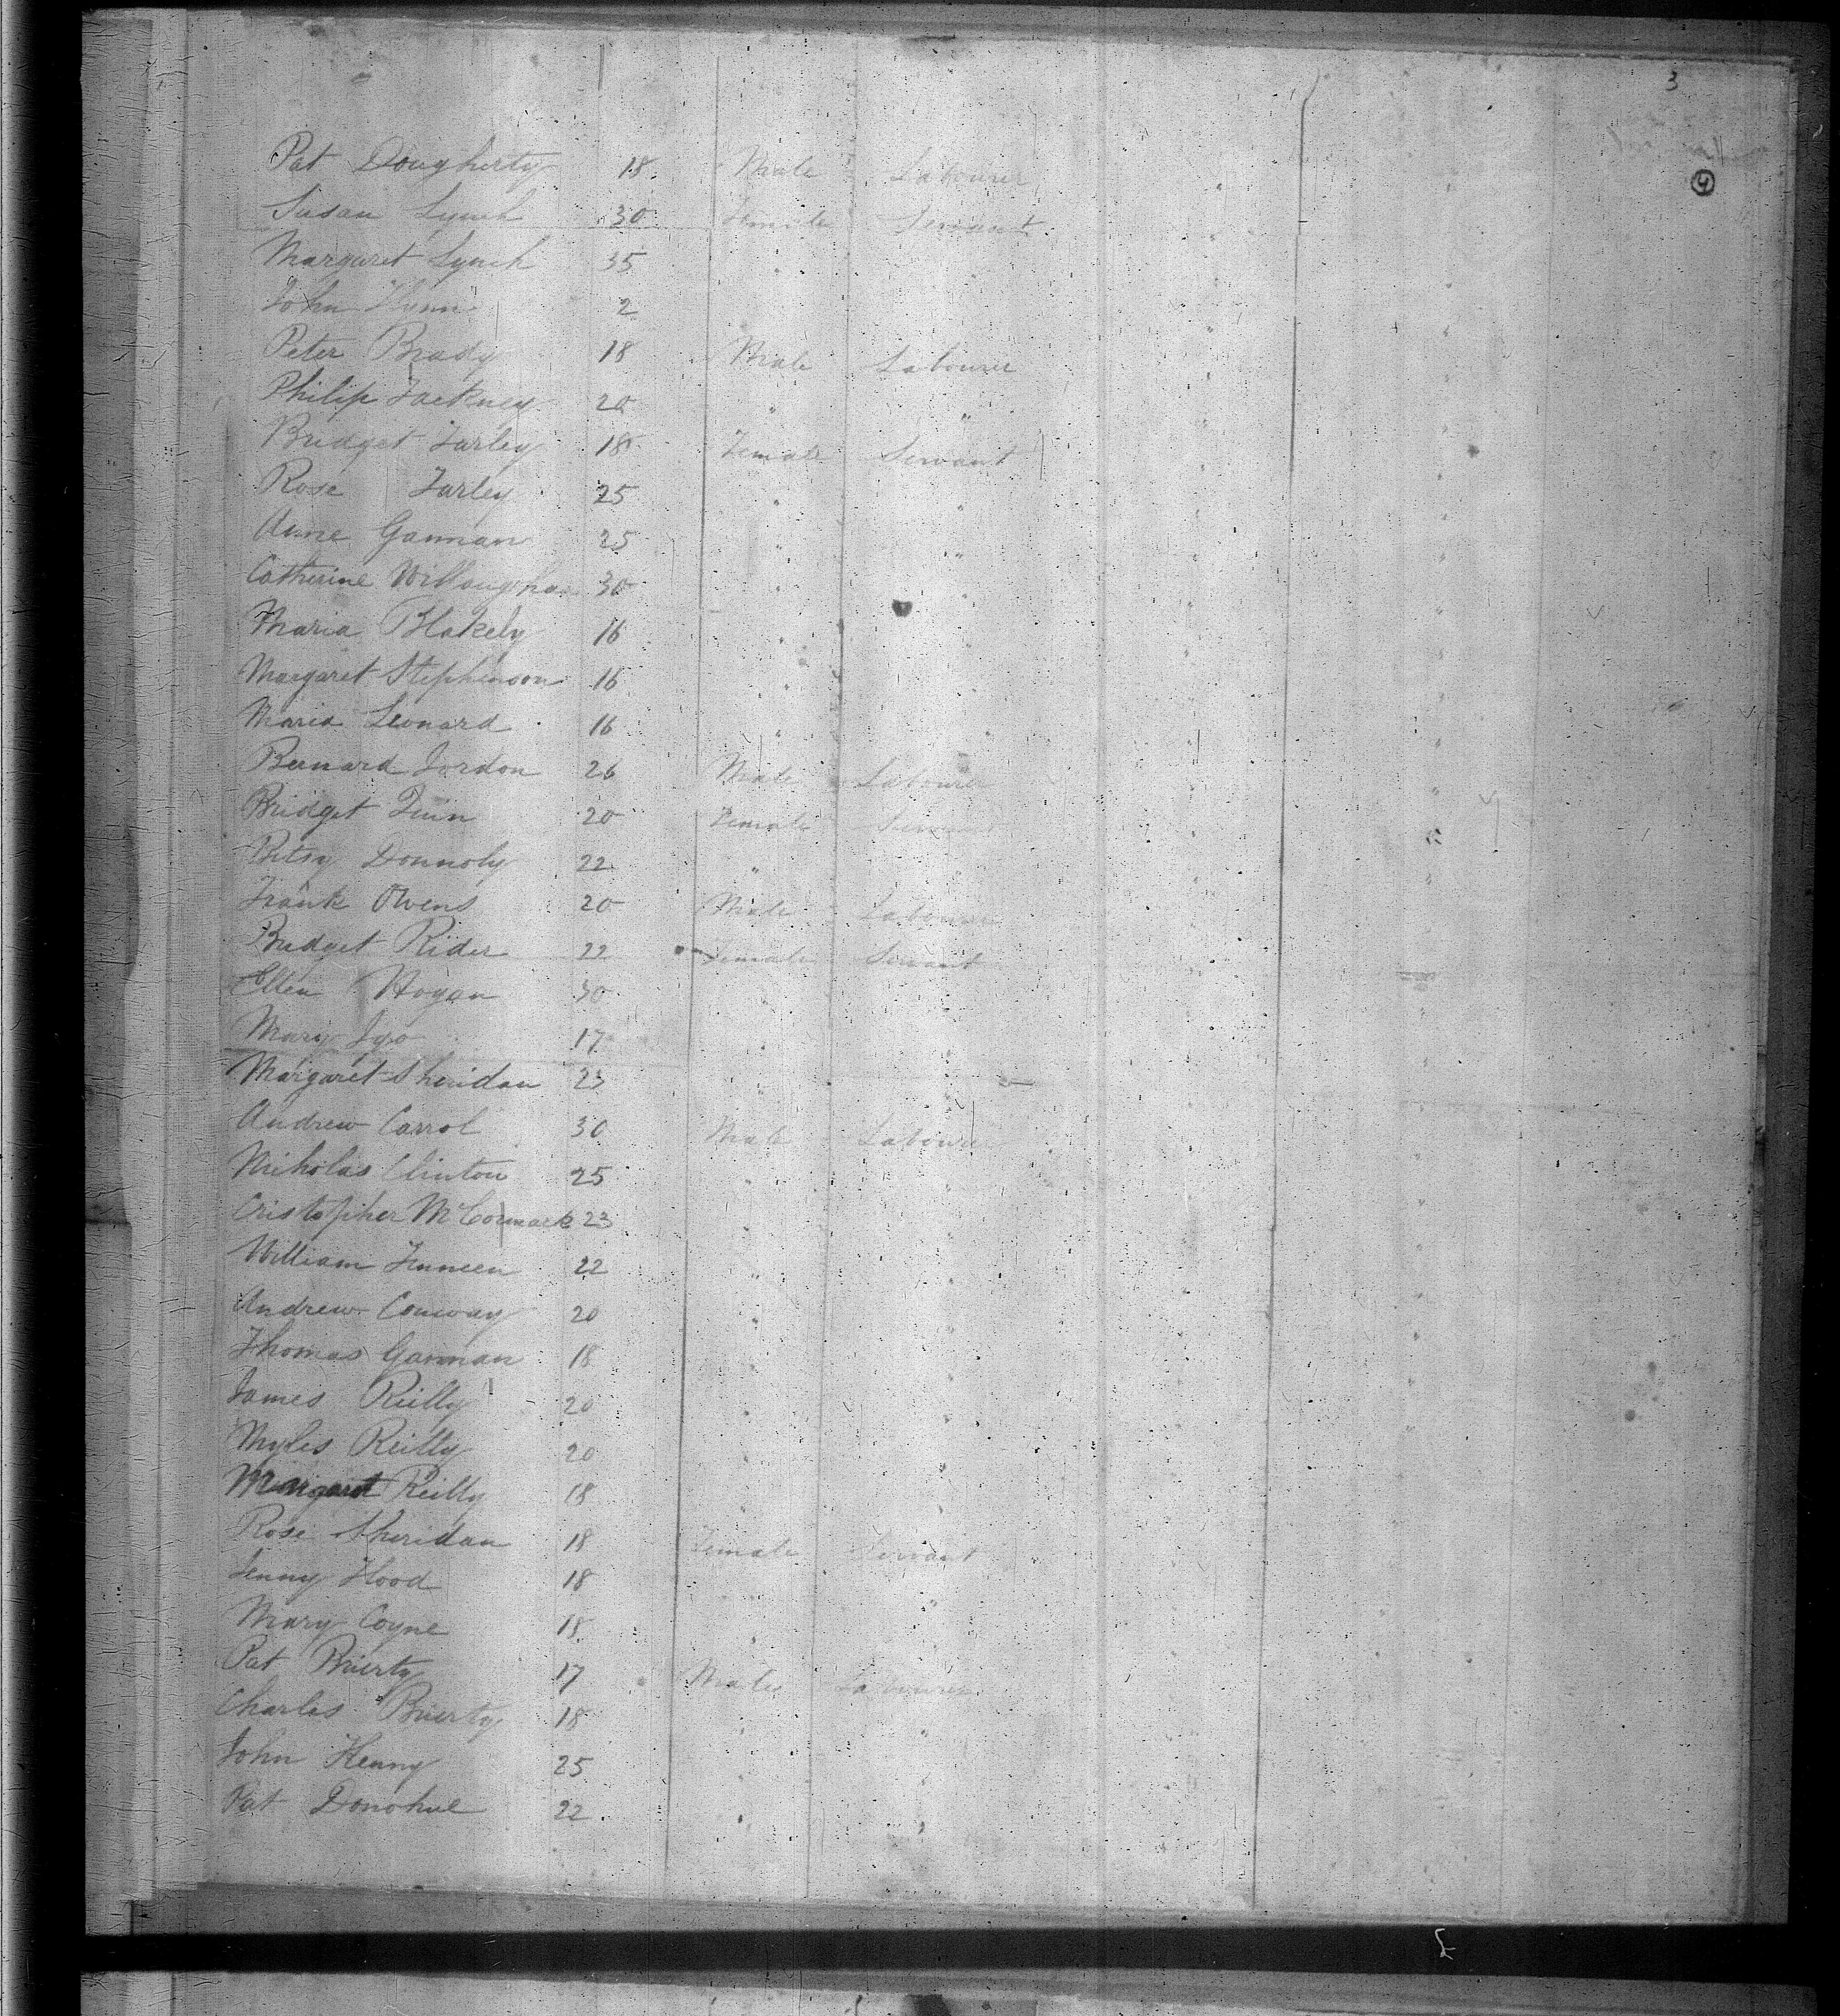 3
9
Pat Dougherty 18 Male Labourer
Susan Lynch 30 Female Servant
Margaret Lynch 35 " "
John Flynn 2
Peter Brady 18 Male Labourer
Philip Fackney 20 " "
Bridget Farley 18 Female Servant
Rose Farley 25 " "
Anne Gannan 25 " "
Catherine 30 "
Maria Blakely 16 "
Margaret Stephenson 16 " "
Maria Leonard 16 " "
Bernard Jordon 26 Male Labourer
Bridget 20 Female Servant
Betsy Donnoly 22 "
Frank Owens 20 Male Labourer
Bridget Rider 22 Female Servant
Ellen Hogan 30
Mary Igo 17 " "
Margaret Sheridan 23 " "
Andrew Carrol 30 Male Labourer
Nicholas Clinton 25 " "
Cristopher McCormack 23 " "
William Finneen 22 " "
Andrew Conway 20 " "
Thomas Gannan 18 " "
James Reilly 20 " "
Myles Reilly 20 " "
Margaret Reilly 18 " "
Rose Sheridan 18 Female Servant
Jenny Hood 18 "
Mary Coyne 18 " "
Pat Brierty 17 Male Labourer
Charles Brierty 18 " "
John Kenny 25 " "
Pat Donohue 22 " "